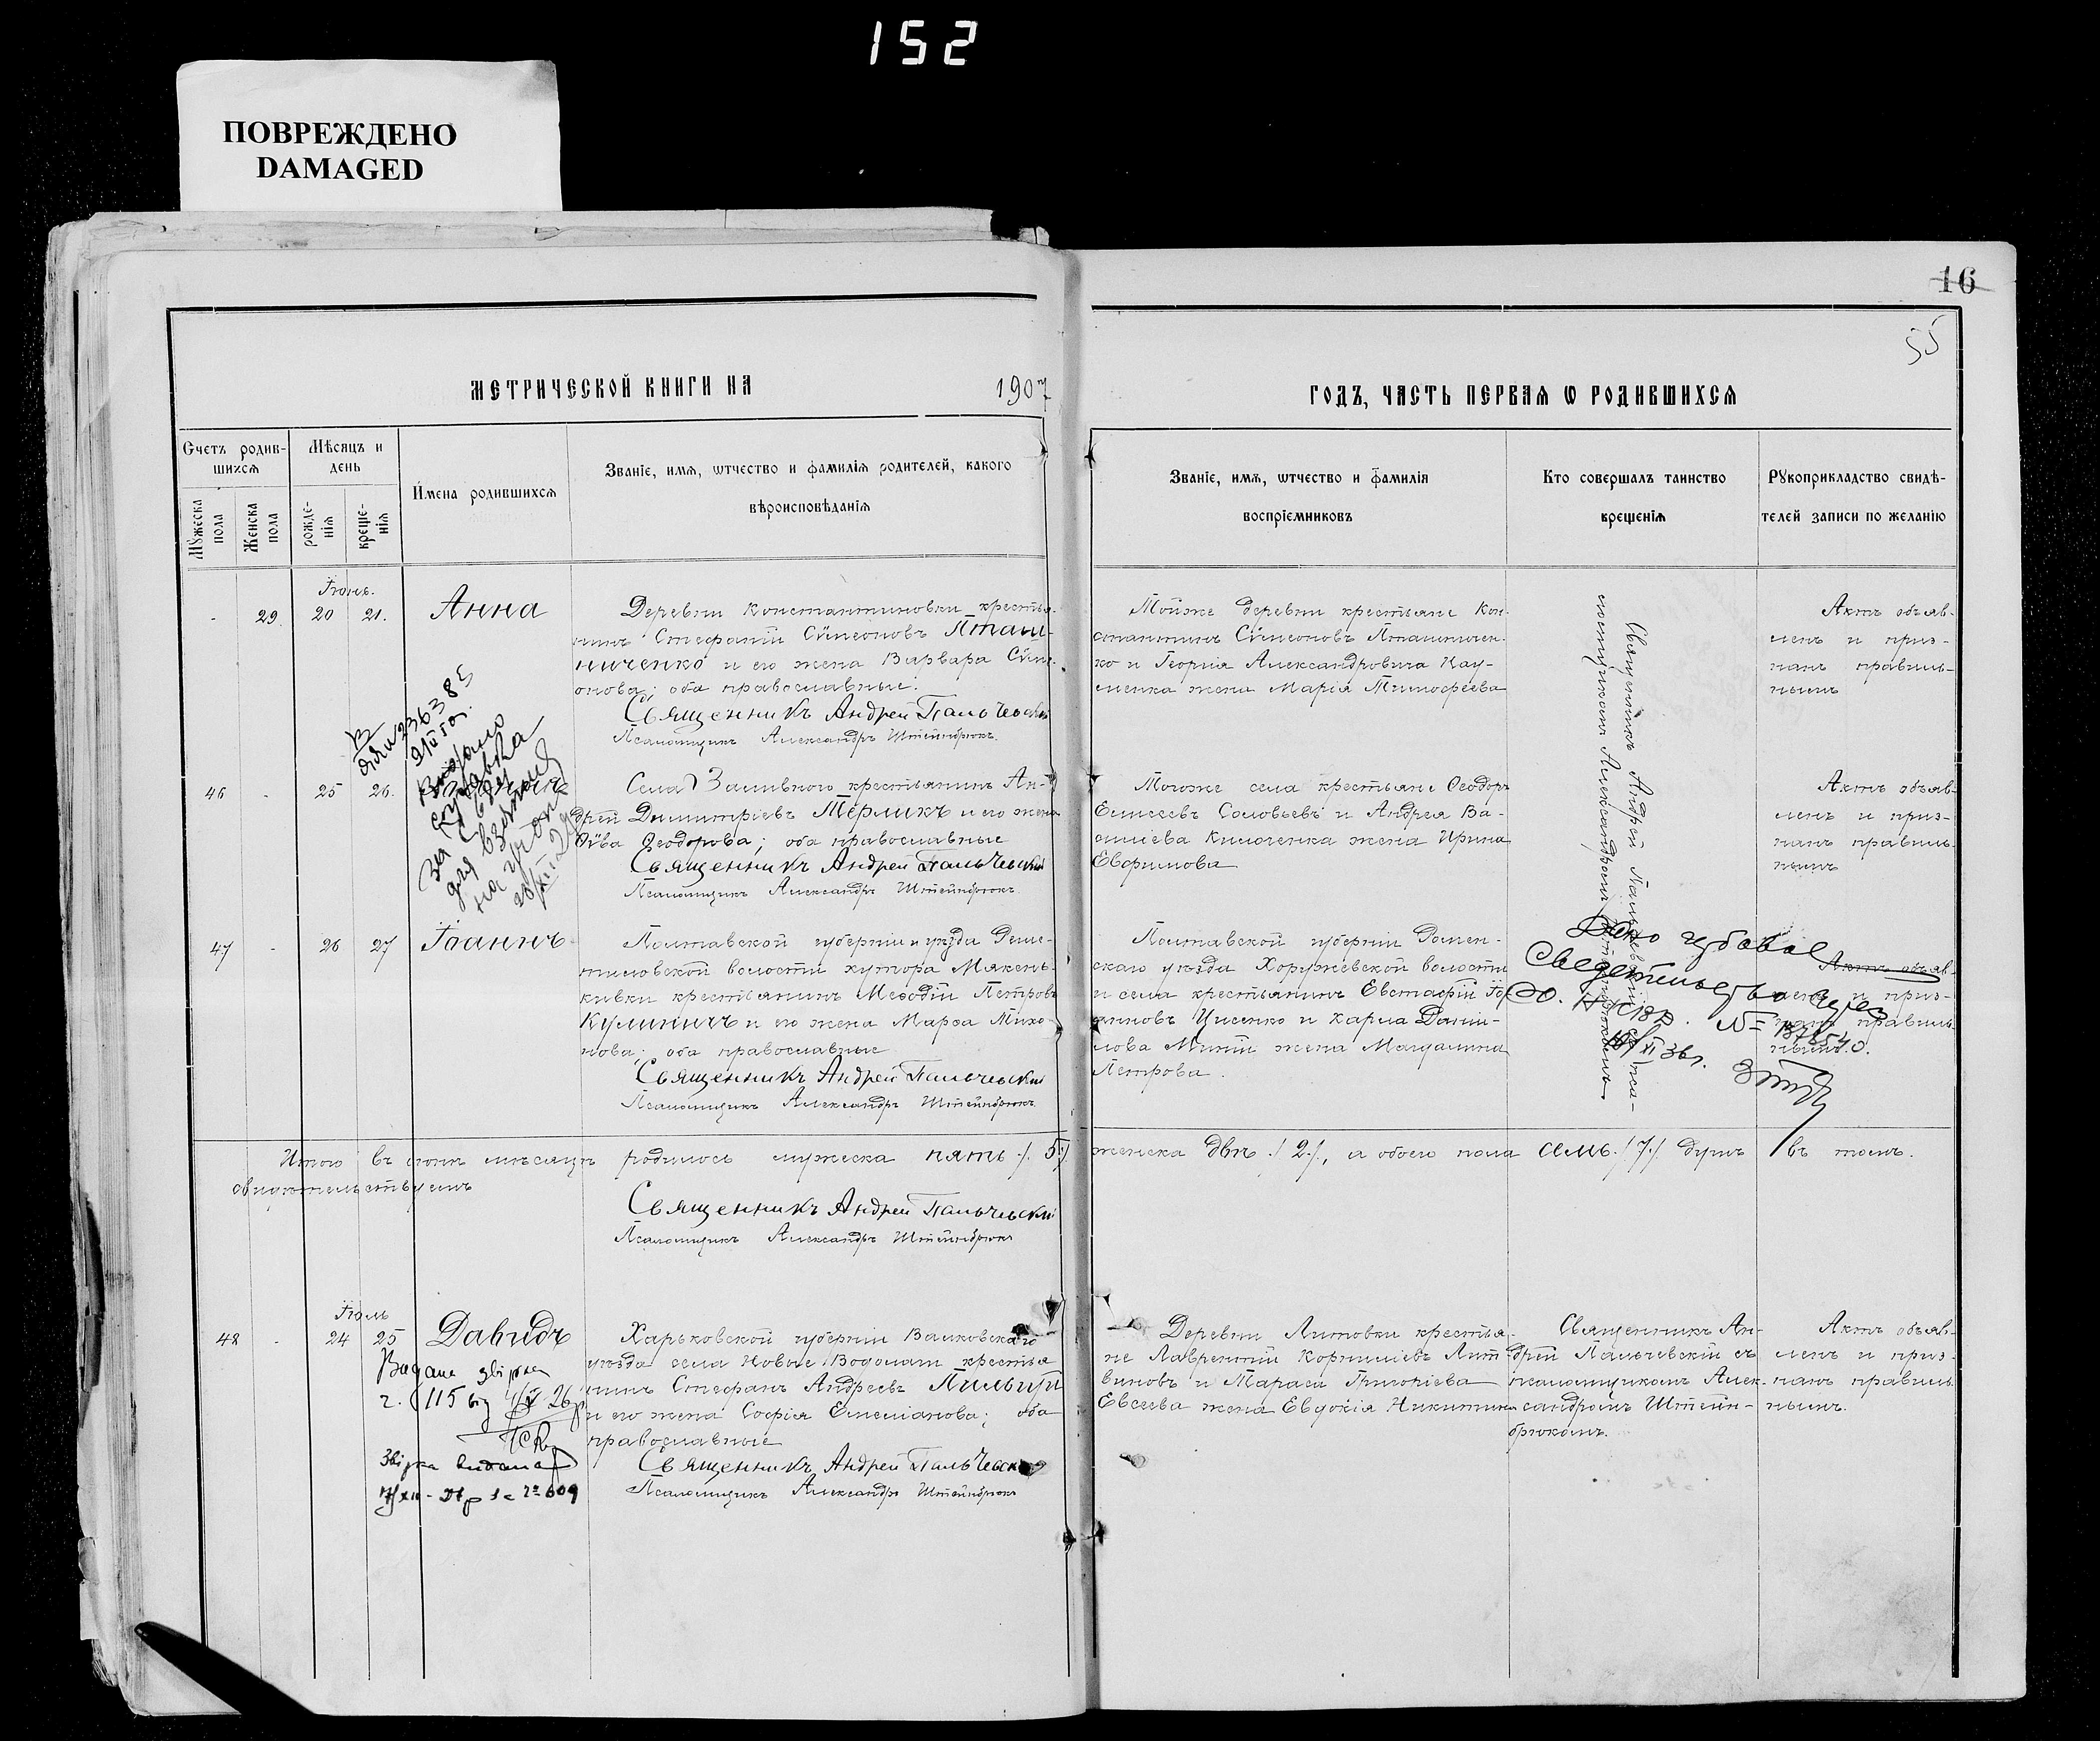 152
ПОВРЕЖДЕНО
DAMAGED
16
55
МЕТРИЧЕСКОЙ КНИГИ НА 1907
ГОДЪ, ЧАСТЬ ПЕРВАЯ Ѡ РОДИВШИХСЯ
Счетъ родив-
шихся
Мужеска пола
Женска пола
Мѣсяцъ и
день
рожде-
нія
креще-
нія
Имена родившихся
Званіе, имя, ѡтчество и фамилія родителей, какого
вѣроисповѣданія
Званіе, имя, ѡтчество и фамилія
воспріемниковъ
Кто совершалъ таинство
крещенія
Рукоприкладство свидѣ-
телей записи по желанію
Іюнь.
- 29. 20 21. Анна
Деревни Константиновки крестья-
нинъ Стефаній Сѵмеоновъ Пташ-
ниченко и его жена Варвара Сѵме-
онова; оба православные.
Священникъ Андрей Пальчевскій
Псаломщикъ Александръ Штейнбрюкъ.
Тойже деревни крестьяне Кон-
стантинъ Сѵмеоновъ Пташничен-
ко и Георгія Александровича Нау-
менка жена Марія Тимофеева
Священникъ Андрей Пальчевскій съ псa-
ломщикомъ Александромъ Штейнбрюкомъ
Актъ объяв-
ленъ и приз-
нанъ правиль-
нымъ
46 - 25 26.
Села Заливного крестьянинъ Ан-
дрей Димитріевъ Терликъ и его жена
Ѳеодорова; оба православные
Священникъ Андрей Пальчевскій
Псаломщикъ Александръ Штейнбрюкъ.
Тогоже села крестьяне Ѳеодоръ
Елисеевъ Соловьевъ и Андрея Ва-
силіева жена Ирина
Евфимова
Актъ объяв-
ленъ и приз-
нанъ правиль-
нымъ
на учёт
47 - 26 27 Іоаннъ
Полтавской губерніи и уѣзда
волости хутора
крестьянинъ Меѳодій Петровъ
Кулиничъ и его жена Марѳа Тихо-
нова; оба православные
Священникъ Андрей Пальчевскій
Псаломщикъ Александръ Штейнбрюкъ.
Полтавской губерніи Ромен-
скаго уѣзда Хоружевской волости
и села крестьянинъ Евстафій
Цисенко и Карпа Даніи-
лова жена Магдалина
Петрова.
Актъ объяв-
ленъ и приз-
нанъ правиль-
нымъ.
Итого въ іюнѣ мѣсяцѣ родилось мужеска пять /.5./ женска двѣ ./2/., а обоего пола семь ./7./ душъ въ томъ.
свидѣтельствуемъ
Священникъ Андрей Пальчевскій
Псаломщикъ Александръ Штейнбрюкъ
Іюль
48 - 24 25 Давидъ
Харьковской губерніи Валковскаго
уѣзда села Новые Водолаги крестья-
нинъ Стефанъ Андреевъ
и его жена Софія Емеліанова; оба
православные
Священникъ Андрей Пальчевскій
Псаломщикъ Александръ Штейнбрюкъ
Деревни Литовки крестья-
не Лаврентій Корниліевъ Лит-
виновъ и Тараса Григоріева
Евсеева жена Евдокія Никитина
Священникъ Ан-
дрей Пальчевскій съ
псаломщикомъ Алек-
сандромъ Штейн-
брюкомъ.
Актъ объяв-
ленъ и приз-
нанъ правиль-
нымъ.